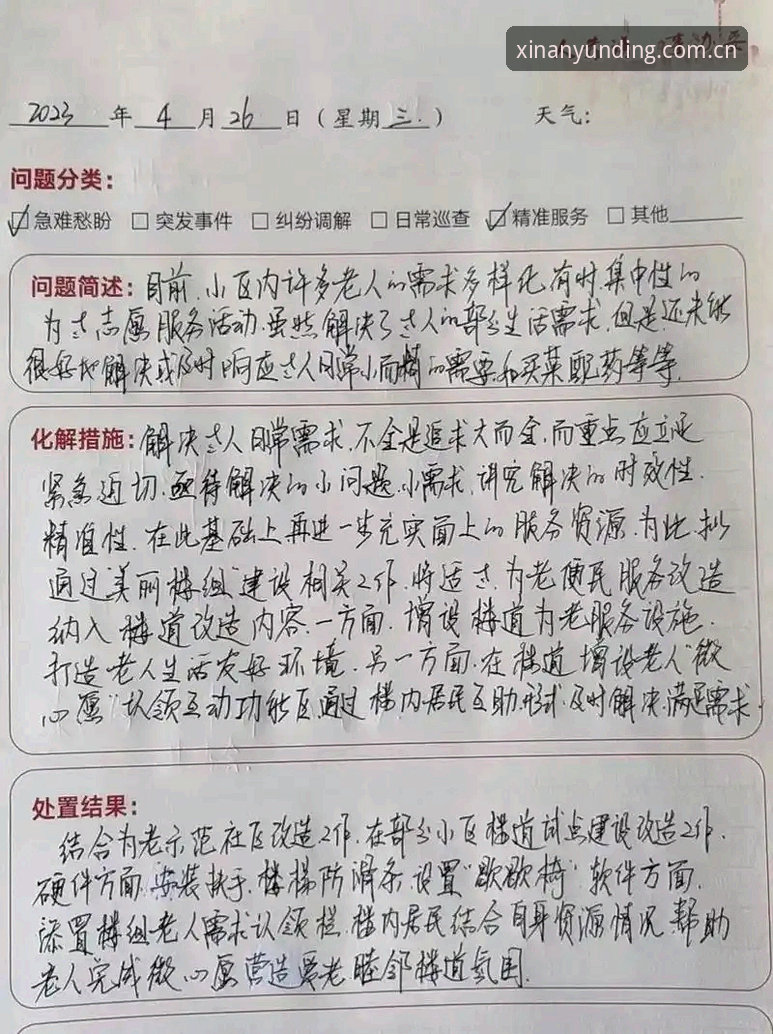 xinanyunding.com.cn
2023 年 4 月 26 日（星期 三 ） 天气：
问题分类：
急难愁盼 突发事件 纠纷调解 日常巡查 精准服务 其他
问题简述：目前，小区内许多老人的需求多样化，有时，集中性的
为老志愿服务活动，虽然解决了老人的部分生活需求，但是还未能
很好地解决或及时响应老人日常小而精的需要，如买菜配药等等。
化解措施：解决老人日常需求，不全是追求大而全，而重点应立足
紧急迫切，亟待解决的小问题、小需求，讲究解决的时效性、
精准性，在此基础上再进一步充实面上的服务资源，为此，拟
通过“美丽楼组”建设相关工作，将适老、为老便民服务改造
纳入楼道改造内容，一方面，增设楼道为老服务设施，
打造老人生活友好环境，另一方面，在楼道增设老人“微
心愿”认领互动功能区，通过楼内居民互助形式，及时解决、满足需求。
处置结果：
结合为老示范社区改造工作，在部分小区楼道试点建设改造工作，
硬件方面，安装扶手、楼梯防滑条，设置“歇歇椅”，软件方面，
添置楼组老人需求认领栏，楼内居民结合自身资源情况，帮助
老人完成微心愿，营造爱老睦邻楼道氛围。